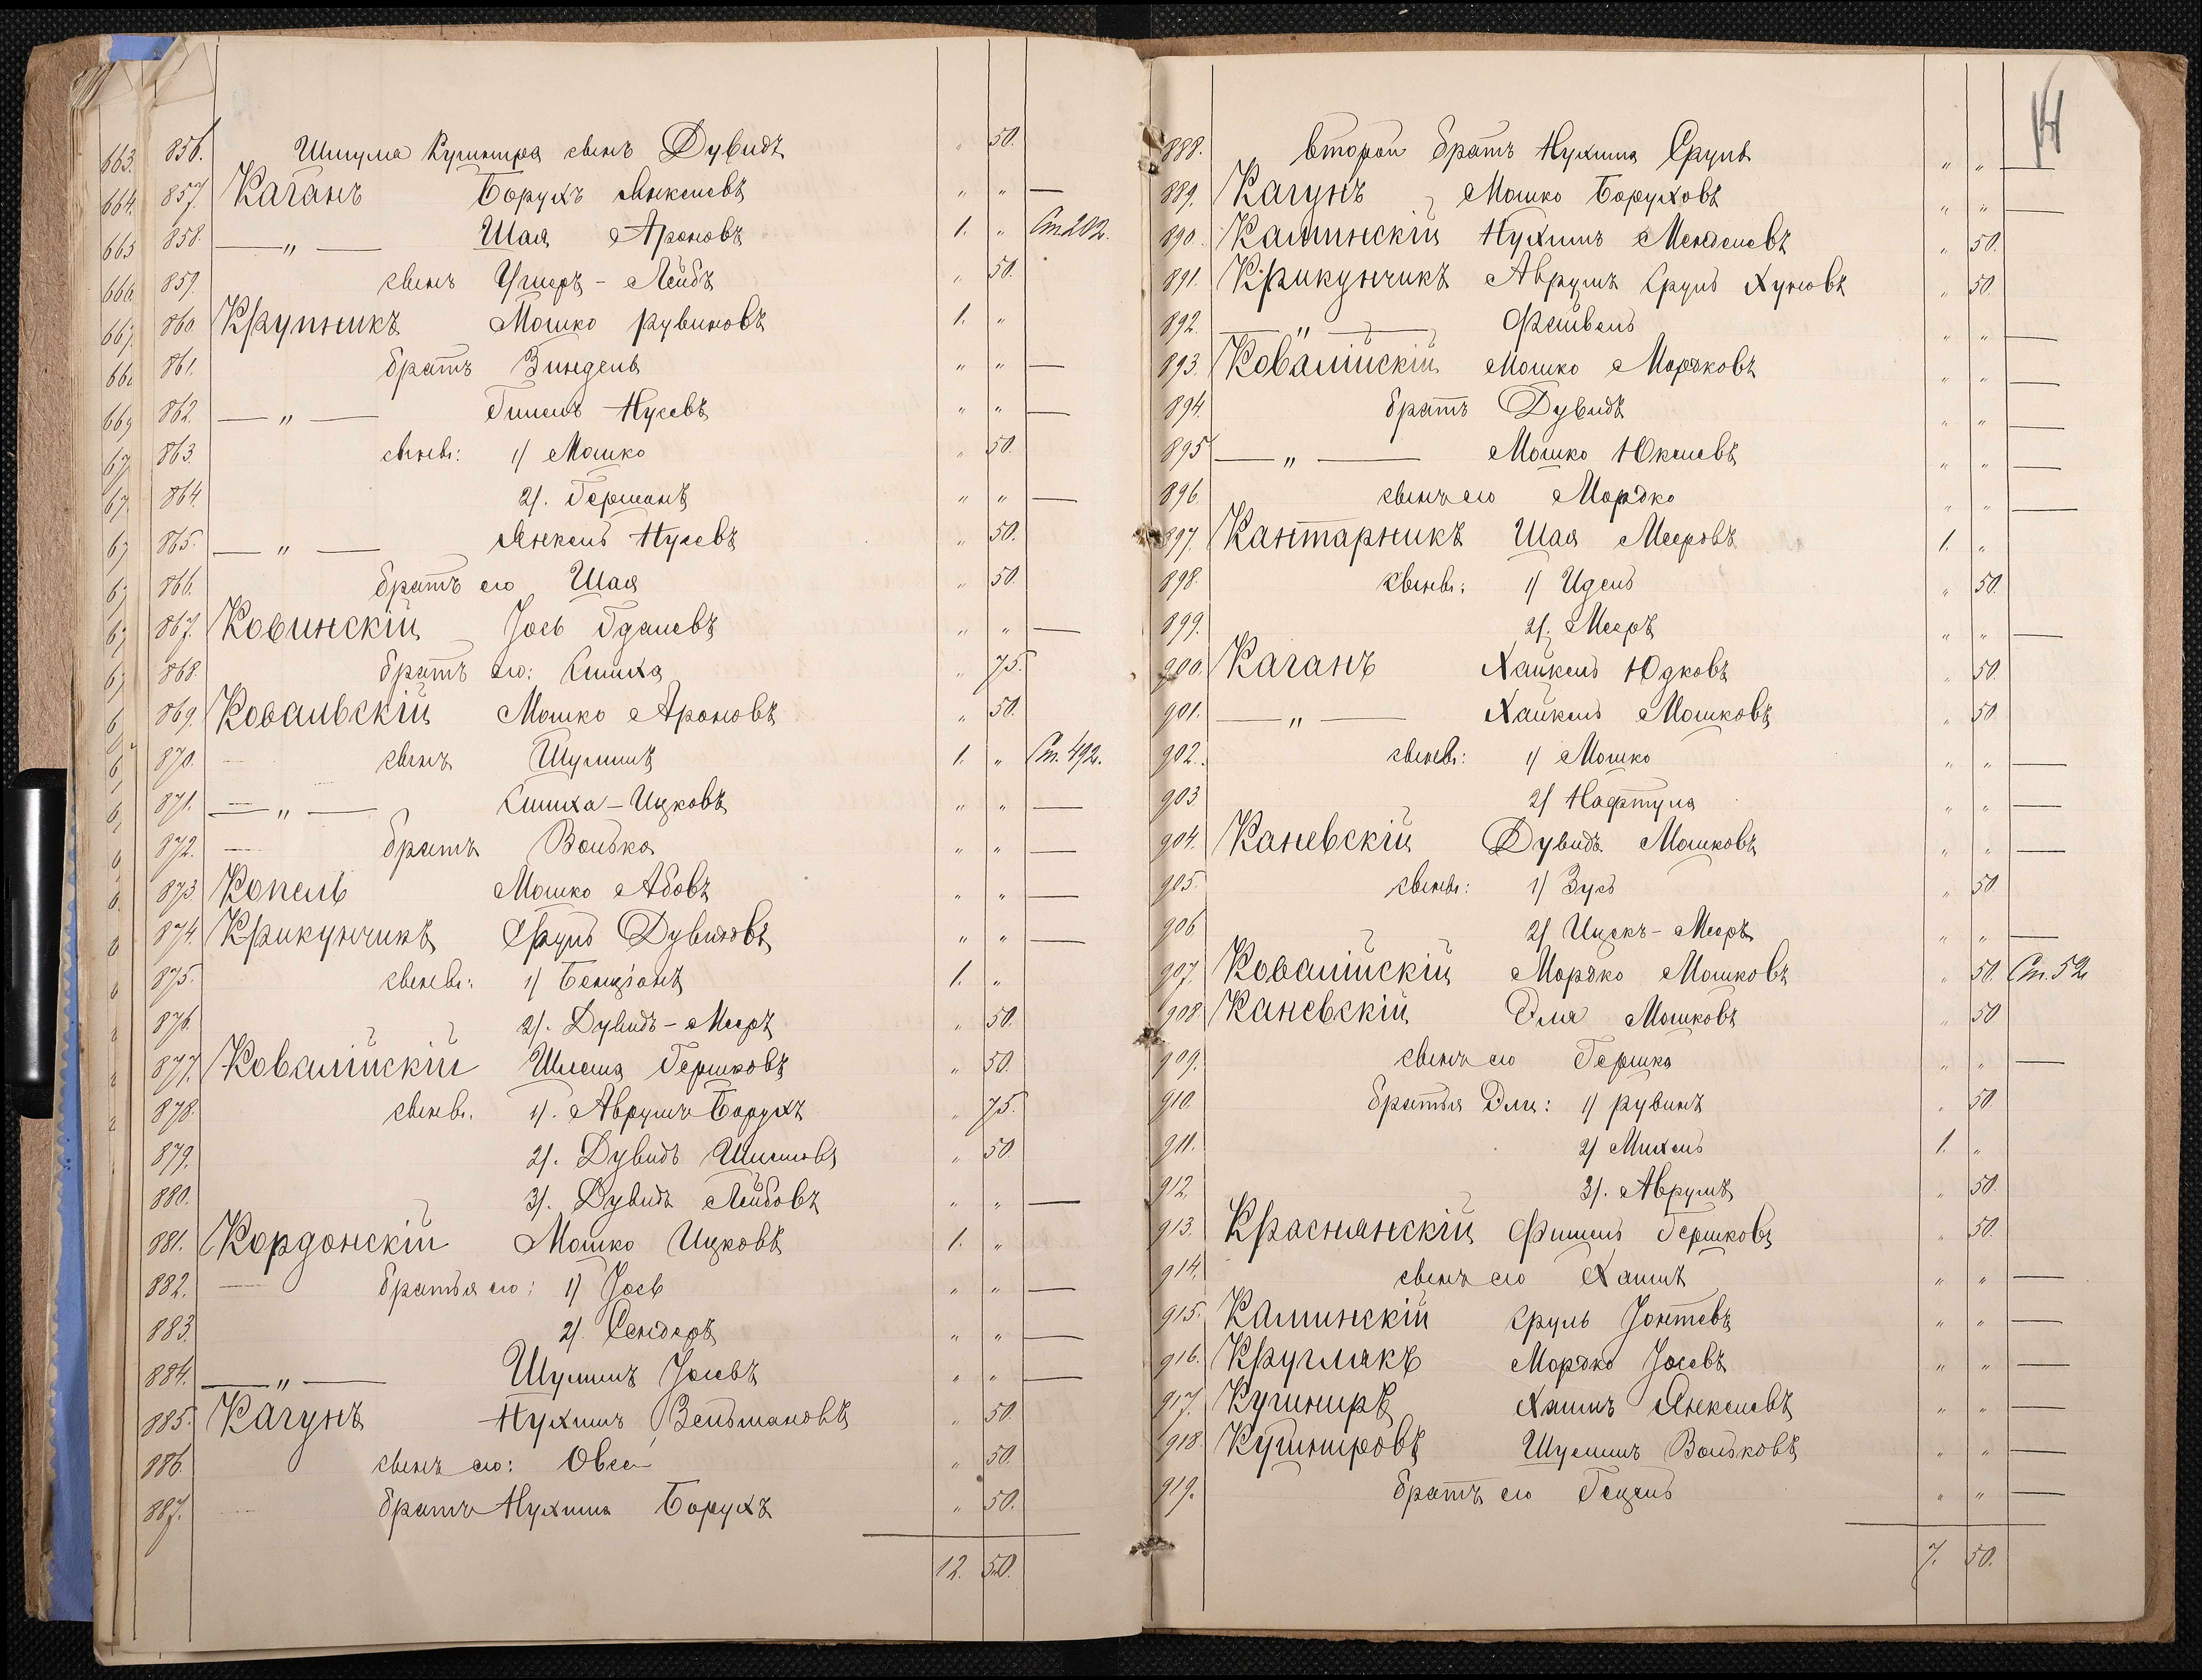 856. Шмула Кушнира сынъ Дувидъ " 50.
857. Каганъ Борухъ Янкелевъ " " —
858. — " — Шая Ароновъ 1. " Ст. 202.
859. сынъ Ушеръ - Лейбъ " 50.
860 Крупникъ Мошко Рувиновъ 1. "
861. братъ Зиндель " " —
862. — " — Гимель Нусевъ " " —
863. сыновья: 1/ Мошко " 50.
864. 2/. Германъ " " —
865. — " — Янкель Нусевъ " 50.
866. братъ его Шая " 50
867. Ковинскій Іось Гдалевъ " " —
868. братъ его: Симха " 75.
869. Ковальскій Мошко Ароновъ " 50.
870. сынъ Шулимъ 1. " Ст. 492.
871. — " — Симха - Ицковъ " " —
872. братъ Волько " " —
873. Копель Мошко Абовъ " " —
874. Крикунчикъ Сруль Дувидовъ " " —
875. сыновья: 1/ Бенціонъ 1. "
876. 2/. Дувидъ - Мееръ " 50.
877. Ковалійскій Шлема Гершковъ " 50.
878. сыновья. 1/. Аврумъ Борухъ " 75.
879. 2/. Дувидъ Шлемовъ " 50.
880. 3/. Дувидъ Лейбовъ " " —
881. Кордонскій Мошко Ицковъ 1. "
882. братья его: 1/ Іось " " —
883. 2/. Сендеръ " " —
884. — " — Шулимъ Іосевъ " " —
885. Кагунъ Нухимъ Вельмановъ " 50.
886. сынъ его: Овсей " 50.
887. братъ Нухима Борухъ " 50.
12. 50.
663.
664.
665
666.
667.
669
14
888. второй братъ Нухима Сруль " " —
889. Кагунъ Мошко Боруховъ " " —
890. Каминскій Нухимъ Менделевъ " 50.
891. Крикунчикъ Аврумъ Сруль Хуновъ " 50.
892. — " — Файвель " " —
893. Ковалійскій Мошко Мордковъ " " —
894. братъ Дувидъ " " —
895 — " — Мошко Юкелевъ " " —
896. сынъ его Мордко " " —
897. Кантарникъ Шая Мееровъ 1. "
898. сыновья: 1/ Идель " 50.
899. 2/. Мееръ " " —
900. Каганъ Хайкель Юдковъ " 50.
901. — " — Хайкель Мошковъ " 50
902. сыновья: 1/ Мошко " " —
903 2/ Нафтула " " —
904. Каневскій Дувидъ Мошковъ " " —
905. сыновья: 1/ Зусь " 50
906 2/ Ицекъ - Мееръ " " —
907. Ковалійскій Мордко Мошковъ " 50. Ст. 52
908 Каневскій Эля Мошковъ " 50
909. сынъ его Гершко " " —
910. братья Эли: 1/ Рувинъ " 50.
911. 2/ Михель 1. "
912. 3/. Аврумъ " 50.
913. Краснянскій Фишель Гершковъ " 50.
914. сынъ его Хаимъ " " —
915. Каминскій Сруль Іонтевъ " " —
916. Круглякъ Мордко Іосевъ " " —
917. Кушниръ Хаимъ Янкелевъ " " —
918. Кушнировъ Шулимъ Вольковъ " " —
919. братъ его Гецель " " —
7. 50.